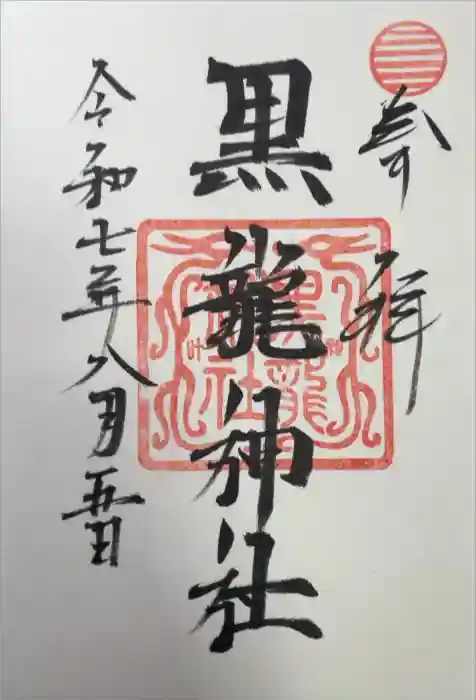 奉拝
黒龍神社
令和七年八月五日